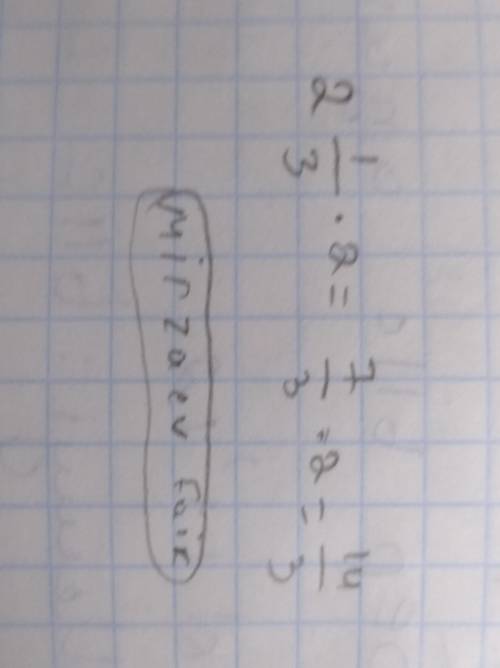 2 1/3 · 2 = 7/3 · 2 = 14/3
Mirzaev Faik